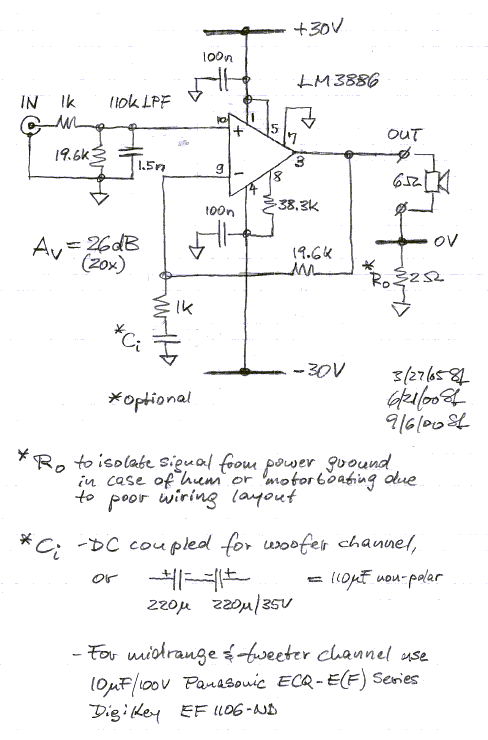 +30V
100n
LM3886
IN 1k 110k LPF
10 + 1 5 7
OUT
19.6k
1.5n
9 - 3
4 8
6Ω
38.3k
100n
0V
Av = 26dB
(20x)
19.6k
* Ro 2Ω
1k
*Ci
-30V
*optional
3/27/05 SL
6/21/00 SL
9/6/00 SL
* Ro to isolate signal from power ground
in case of hum or motorboating due
to poor wiring layout
* Ci - DC coupled for woofer channel,
or + - - + = 110µF non-polar
220µ 220µ/35V
- For midrange & tweeter channel use
10µF/100V Panasonic ECQ-E(F) Series
DigiKey EF 1106-ND